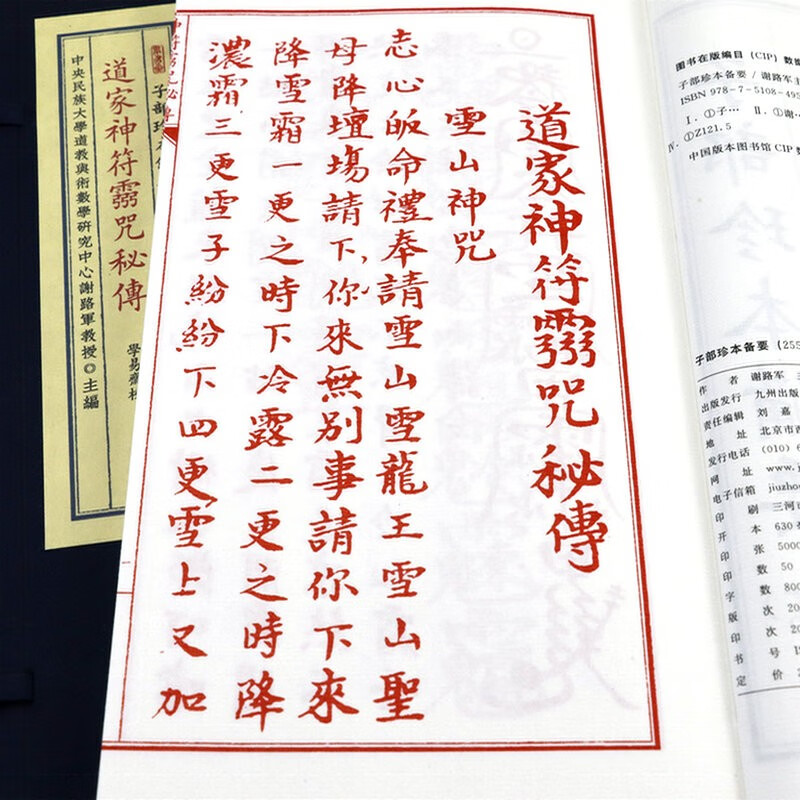 道家神符霛咒秘傳
雪山神咒
志心皈命禮奉請雪山雪龍王雪山聖
母降壇場請下你來無別事請你下來
降雪霜一更之時下冷露二更之時降
濃霜三更雪子紛紛下四更雪上又加
子部珍本
道家神符霛咒秘傳
中央民族大學道教與術數學研究中心謝路軍教授◎主編
學易齋
图书在版编目(CIP)数据
子部珍本备要/谢路军
ISBN 978-7-5108-495
Ⅰ.①子… Ⅱ.①谢…
Ⅳ.①Z121.5
中国版本图书馆CIP数
子部珍本备要(255
作 者 谢路军
出版发行 九州出版
责任编辑 刘 嘉
地 址 北京市西
发行电话 (010)6
网 址 www.j
电子信箱 jiuzho
印 刷 三河市
开 本 630
印 张 5000
印 数 50
字 数 800
版 次 20
印 次 20
书 号 IS
定 价